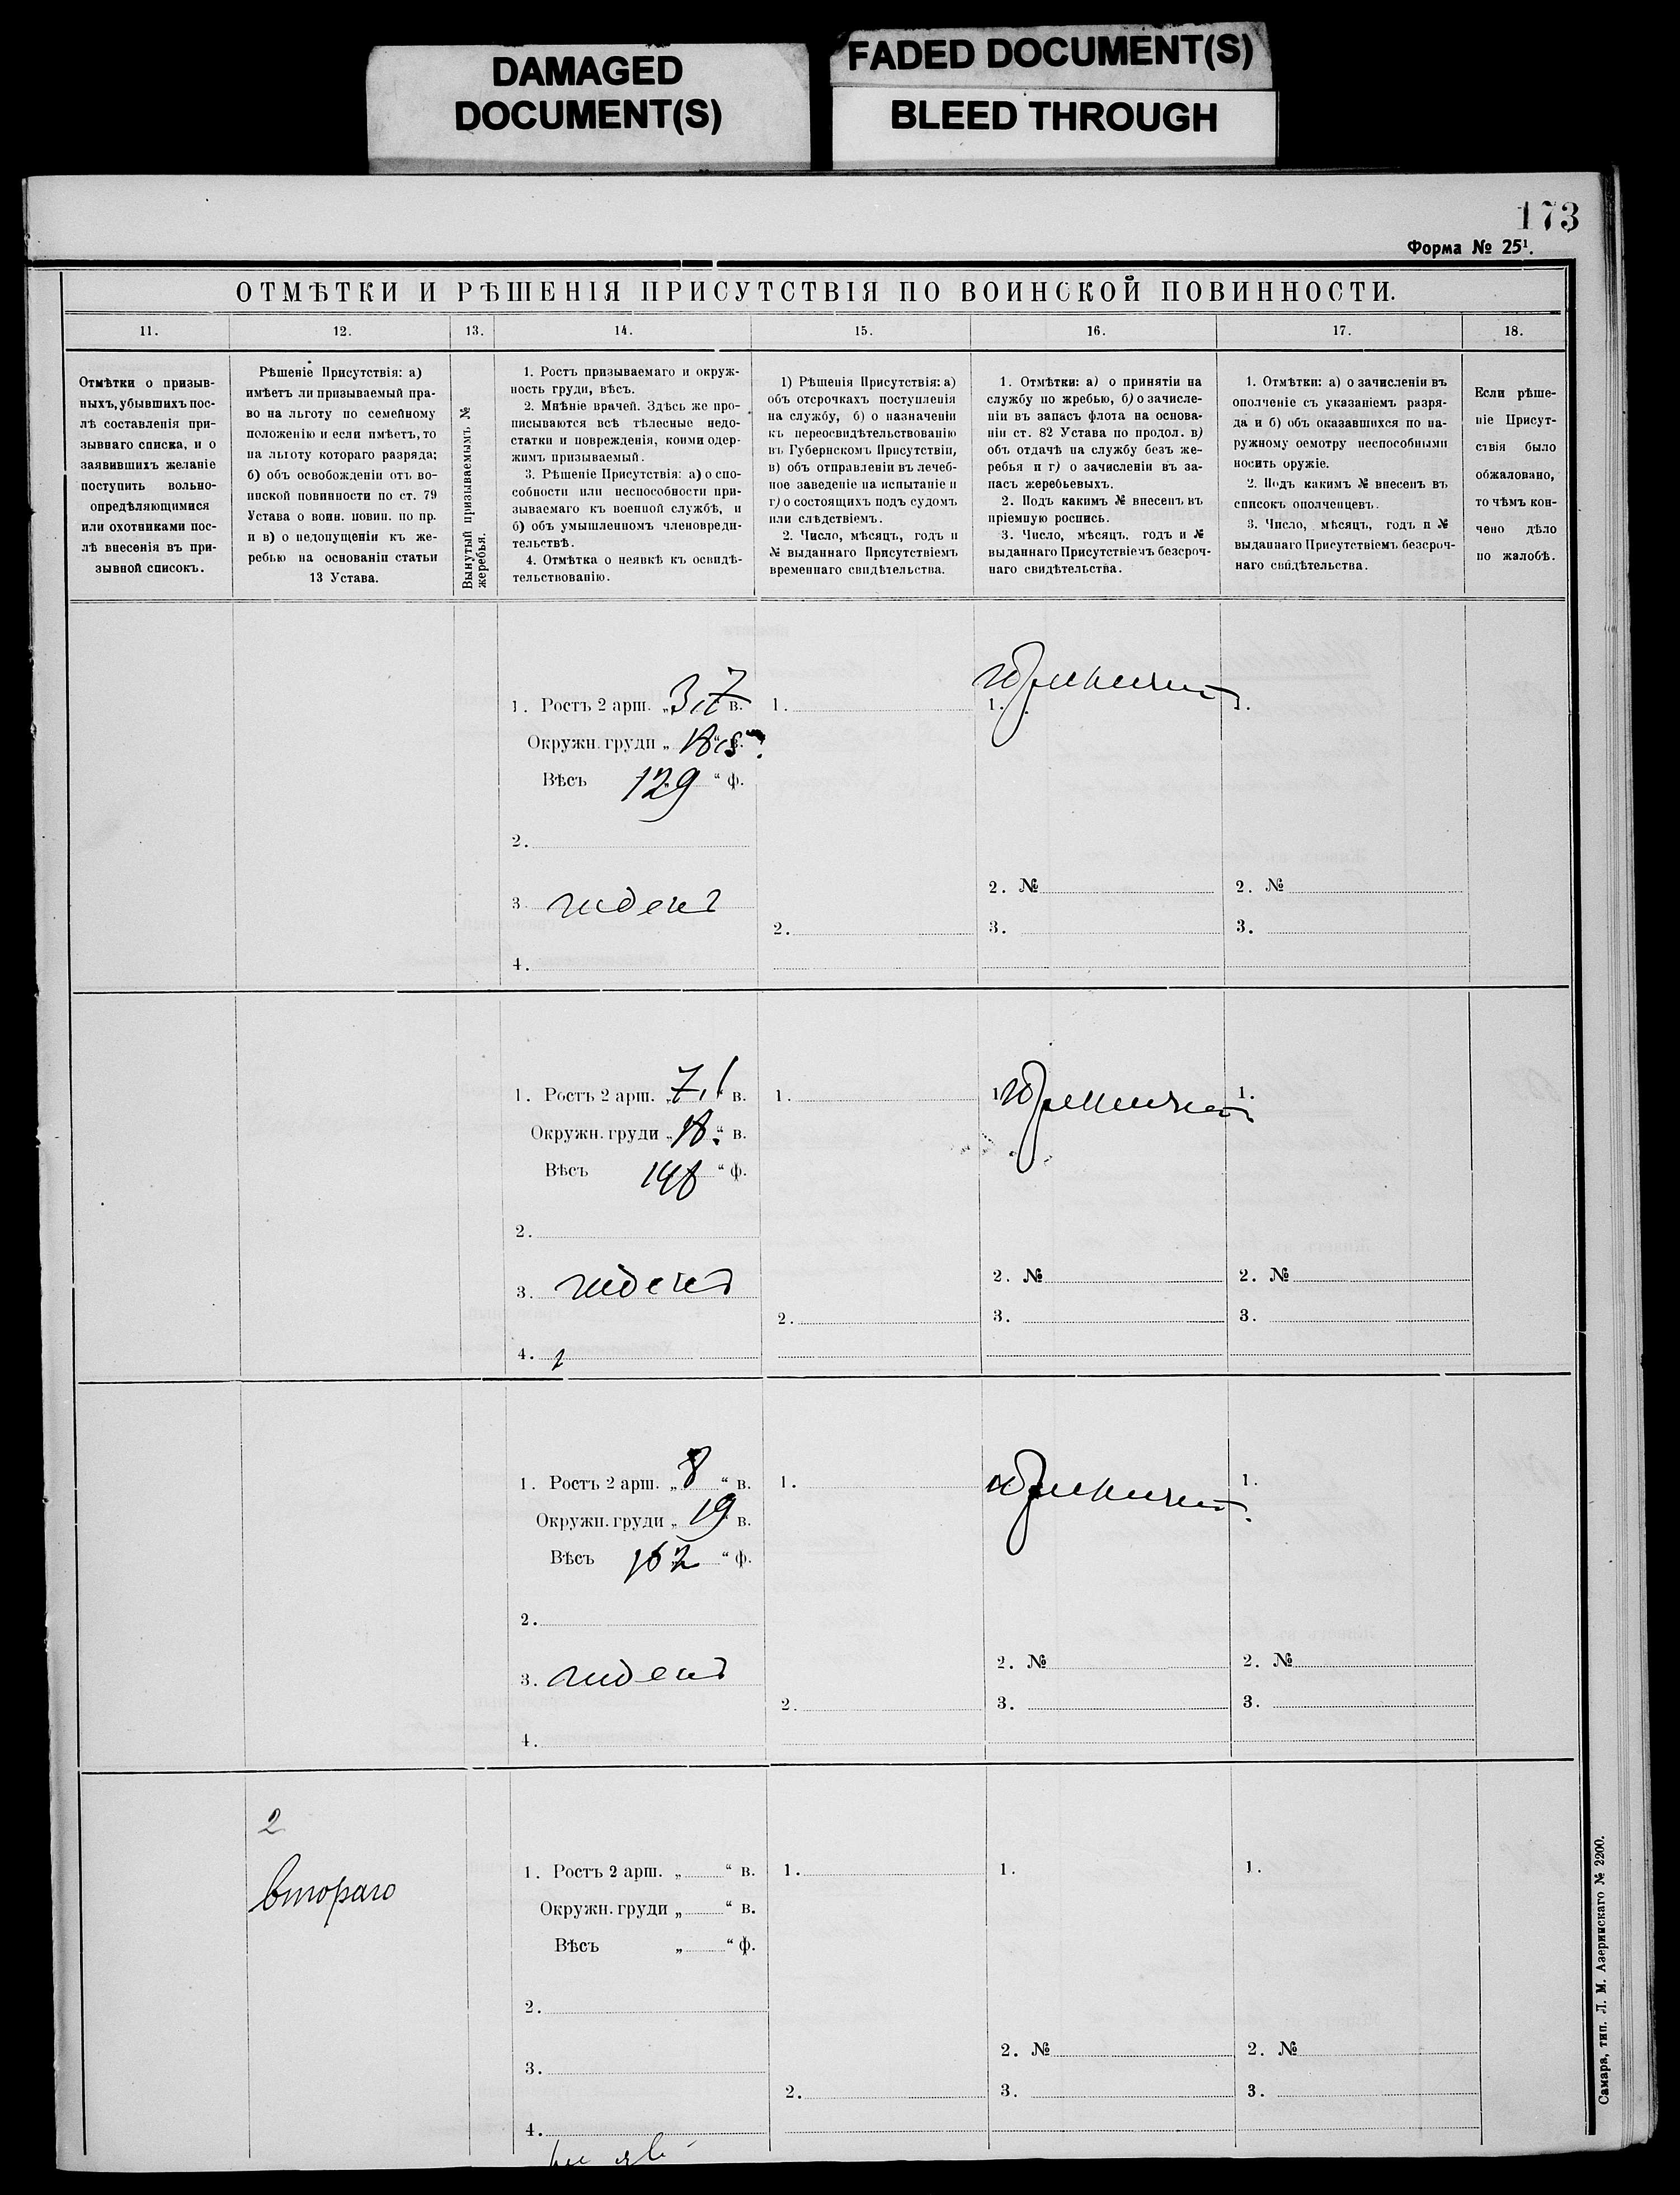 DAMAGED
DOCUMENT(S)
FADED DOCUMENT(S)
BLEED THROUGH
173
Форма № 25¹.
ОТМѢТКИ И РѢШЕНІЯ ПРИСУТСТВІЯ ПО ВОИНСКОЙ ПОВИННОСТИ.
11.
12.
13.
14.
15.
16.
17.
18.
Отмѣтки о призыв-
ныхъ, убывшихъ пос-
лѣ составленія при-
зывнаго списка, и о
заявившихъ желаніе
поступить вольно-
опредѣляющимися
или охотниками пос-
лѣ внесенія въ при-
зывной списокъ.
Рѣшеніе Присутствія: а)
имѣетъ ли призываемый пра-
во на льготу по семейному
положенію и если имѣетъ, то
на льготу котораго разряда;
б) объ освобожденіи отъ во-
инской повинности по ст. 79
Устава о воин. повин. по пр.
и в) о недопущеніи къ же-
ребью на основаніи статьи
13 Устава.
Вынутый призываемымъ №
жеребья.
1. Ростъ призываемаго и окруж-
ность груди, вѣсъ.
2. Мнѣніе врачей. Здѣсь же про-
писываются всѣ тѣлесные недо-
статки и поврежденія, коими одер-
жимъ призываемый.
3. Рѣшеніе Присутствія: а) о спо-
собности или неспособности при-
зываемаго къ военной службѣ, и
б) объ умышленномъ членовреди-
тельствѣ.
4. Отмѣтка о неявкѣ къ освидѣ-
тельствованію.
1) Рѣшенія Присутствія: а)
объ отсрочкахъ поступленія
на службу, б) о назначеніи
къ переосвидѣтельствованію
въ Губернскомъ Присутствіи,
в) объ отправленіи въ лечеб-
ное заведеніе на испытаніе и
г) о состоящихъ подъ судомъ
или слѣдствіемъ.
2. Число, мѣсяцъ, годъ и
№ выданнаго Присутствіемъ
временнаго свидѣтельства.
1. Отмѣтки: а) о принятіи на
службу по жребью, б) о зачисле-
ніи въ запасъ флота на основа-
ніи ст. 82 Устава по продол. в)
объ отдачѣ на службу безъ же-
ребья и г) о зачисленіи въ за-
пасъ жеребьевыхъ.
2. Подъ какимъ № внесенъ въ
пріемную роспись.
3. Число, мѣсяцъ, годъ и №
выданнаго Присутствіемъ безсроч-
наго свидѣтельства.
1. Отмѣтки: а) о зачисленіи въ
ополченіе съ указаніемъ разря-
да и б) объ оказавшихся по на-
ружному осмотру неспособными
носить оружіе.
2. Подъ какимъ № внесенъ въ
списокъ ополченцевъ.
3. Число, мѣсяцъ, годъ и №
выданнаго Присутствіемъ безсроч-
наго свидѣтельства.
Если рѣше-
ніе Присут-
ствія было
обжаловано,
то чѣмъ кон-
чено дѣло
по жалобѣ.
1. Ростъ 2 арш. „ 3,7 в. 1. 1. 1.
Окружн. груди „ “ в.
Вѣсъ 129 “ ф.
2.
2. № 2. №
3. годенъ
2. 3. 3.
4.
1. Ростъ 2 арш. „ 7,1 в. 1. 1. 1.
Окружн. груди „ 18 “ в.
Вѣсъ 148 “ ф.
2.
2. № 2. №
3. годенъ
2. 3. 3.
4.
1. Ростъ 2 арш. „ 8 “ в. 1. 1.
Окружн. груди „ 19 в.
Вѣсъ 162 “ ф.
2.
2. № 2. №
3. годенъ
2. 3. 3.
4.
2
втораго
1. Ростъ 2 арш. „ “ в. 1. 1. 1.
Окружн. груди „ “ в.
Вѣсъ „ “ ф.
2.
2. № 2. №
3.
2. 3. 3.
4.
Самара, тип. Л. М. Азеринскаго № 2200.